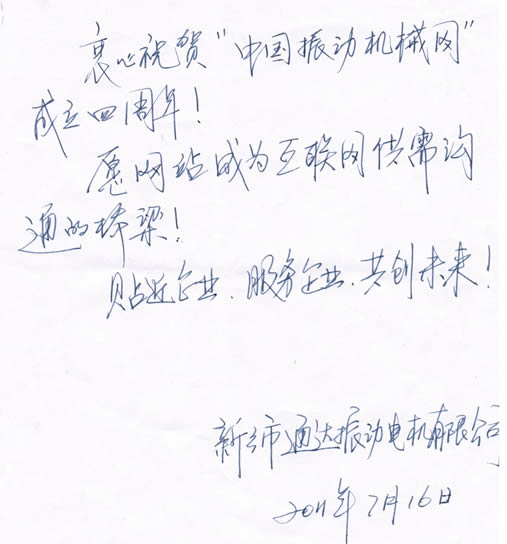 衷心祝贺“中国振动机械网”
成立四周年！
愿网站成为互联网供需沟
通的桥梁！
贴近企业、服务企业、共创未来！
新乡市通达振动电机有限公司
2011年7月16日